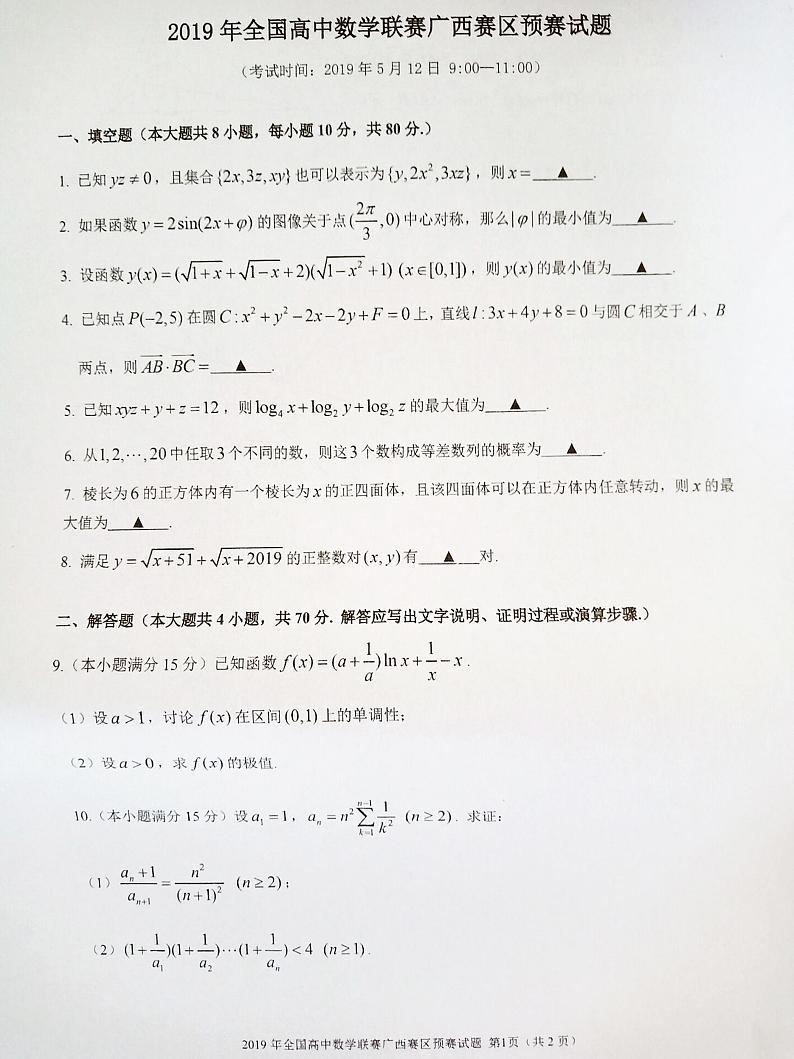 2019 年全国高中数学联赛广西赛区预赛试题
（考试时间：2019 年 5 月 12 日 9:00—11:00）
一、填空题（本大题共 8 小题，每小题 10 分，共 80 分.）
1. 已知 yz ≠ 0，且集合{2x,3z,xy}也可以表示为{y,2x²,3xz}，则 x = ▲ .
2. 如果函数 y = 2sin(2x+φ) 的图像关于点(2π/3,0)中心对称，那么|φ|的最小值为 ▲ .
3. 设函数 y(x) = (√(1+x) + √(1−x) + 2)(√(1−x²) + 1) (x∈[0,1])，则 y(x) 的最小值为 ▲ .
4. 已知点 P(−2,5) 在圆 C : x² + y² − 2x − 2y + F = 0 上，直线 l : 3x + 4y + 8 = 0 与圆 C 相交于 A 、B
两点，则 AB⃗ · BC⃗ = ▲ .
5. 已知 xyz + y + z = 12，则 log₄ x + log₂ y + log₂ z 的最大值为 ▲ .
6. 从 1,2,⋯,20 中任取 3 个不同的数，则这 3 个数构成等差数列的概率为 ▲ .
7. 棱长为 6 的正方体内有一个棱长为 x 的正四面体，且该四面体可以在正方体内任意转动，则 x 的最
大值为 ▲ .
8. 满足 y = √(x+51) + √(x+2019) 的正整数对 (x, y) 有 ▲ 对.
二、解答题（本大题共 4 小题，共 70 分. 解答应写出文字说明、证明过程或演算步骤.）
9.（本小题满分 15 分）已知函数 f(x) = (a + 1/a) ln x + 1/x − x .
（1）设 a > 1，讨论 f(x) 在区间 (0,1) 上的单调性；
（2）设 a > 0，求 f(x) 的极值.
10.（本小题满分 15 分）设 a₁ = 1，aₙ = n² ∑_{k=1}^{n−1} 1/k² (n ≥ 2) . 求证：
（1）(aₙ + 1)/aₙ₊₁ = n²/(n+1)² (n ≥ 2)；
（2）(1 + 1/a₁)(1 + 1/a₂)⋯(1 + 1/aₙ) < 4 (n ≥ 1) .
2019 年全国高中数学联赛广西赛区预赛试题 第1页（共 2 页）